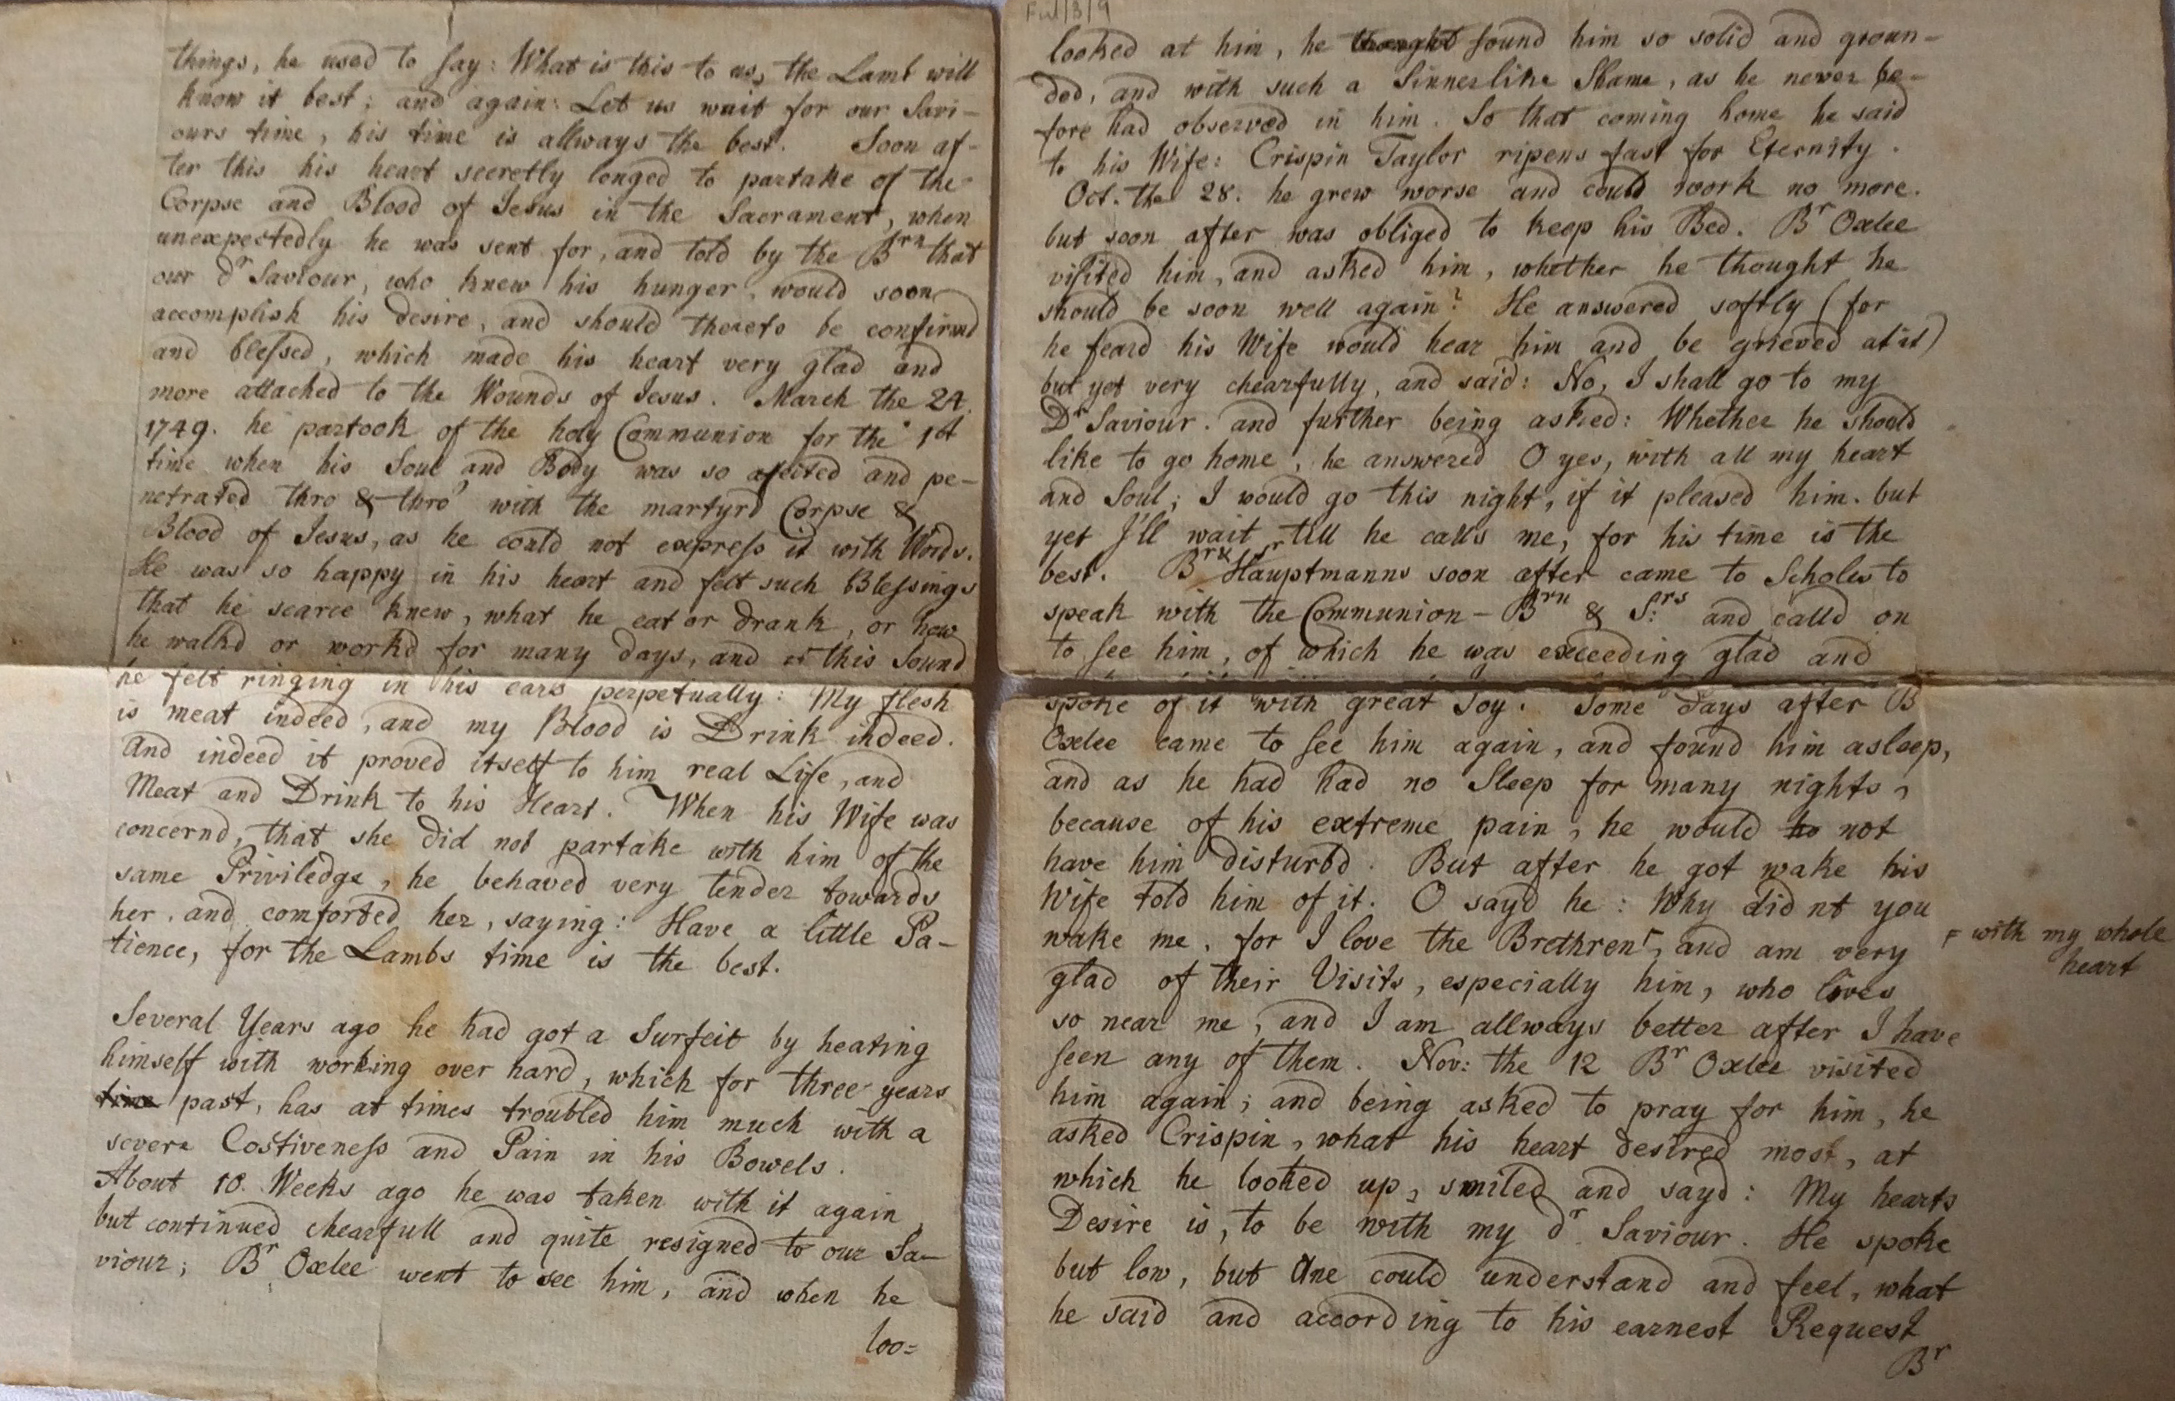 things, he used to say: What is this to us, the Lamb will
know it best; and again: Let us wait for our Savi-
ours time, his time is allways the best. Soon af-
ter this his heart secretly longed to partake of the
Corpse and Blood of Jesus in the Sacrament, when
unexpectedly he was sent for, and told by the Brn that
our dr Saviour, who knew his hunger, would soon
accomplish his desire, and should thereto be confirmd
and blessed, which made his heart very glad and
more attached to the Wounds of Jesus. March the 24.
1749. he partook of the holy Communion for the 1st
time when his Soul and Body was so afected and pe-
netrated thro & thro' with the martyrd Corpse &
Blood of Jesus, as he could not express it with Words.
He was so happy in his heart and felt such Blessings
that he scarce knew, what he eat or drank, or how
he walkd or workd for many days, and this Sound
he felt ringing in his ears perpetually: My flesh
is meat indeed, and my Blood is Drink indeed.
And indeed it proved itself to him real Life, and
Meat and Drink to his Heart. When his Wife was
concernd, that she did not partake with him of the
same Priviledge, he behaved very tender towards
her, and comforted her, saying: Have a little Pa-
tience, for the Lambs time is the best.
Several Years ago he had got a Surfeit by heating
himself with working over hard, which for three years
time past, has at times troubled him much with a
severe Costiveness and Pain in his Bowels.
About 10 Weeks ago he was taken with it again,
but continued chearfull and quite resigned to our Sa-
viour; Br Oxlee went to see him, and when he
loo=
Ful/3/9
looked at him, he thought found him so solid and groun-
ded, and with such a Sinnerlike Shame, as he never be-
fore had observed in him. So that coming home he said
to his Wife: Crispin Taylor ripens fast for Eternity.
Oct. the 28. he grew worse and could work no more.
but soon after was obliged to keep his Bed. Br Oxlee
visited him, and asked him, whether he thought he
should be soon well again? He answered softly (for
he feard his Wife would hear him and be grieved at it)
but yet very chearfully, and said: No, I shall go to my
Dr Saviour. and further being asked: Whether he should
like to go home, he answered O yes, with all my heart
and Soul; I would go this night, if it pleased him. but
yet I'll wait till he calls me, for his time is the
best. Br & Sr Hauptmanns soon after came to Scholes to
speak with the Communion - Brn & S:rs and calld on
to see him, of which he was exceeding glad and
spoke of it with great Joy. Some days after B
Oxlee came to see him again, and found him asleep,
and as he had had no Sleep for many nights,
because of his extreme pain, he would to not
have him disturbd. But after he got wake his
Wife told him of it. O sayd he: Why did nt you
wake me, for I love the Brethren F and am very
F with my whole
heart
glad of their Visits, especially him, who lives
so near me, and I am allways better after I have
seen any of them. Nov: the 12 Br Oxlee visited
him again; and being asked to pray for him, he
asked Crispin, what his heart desired most, at
which he looked up, smiled and sayd: My hearts
Desire is, to be with my dr Saviour. He spoke
but low, but One could understand and feel, what
he said and according to his earnest Request
Br